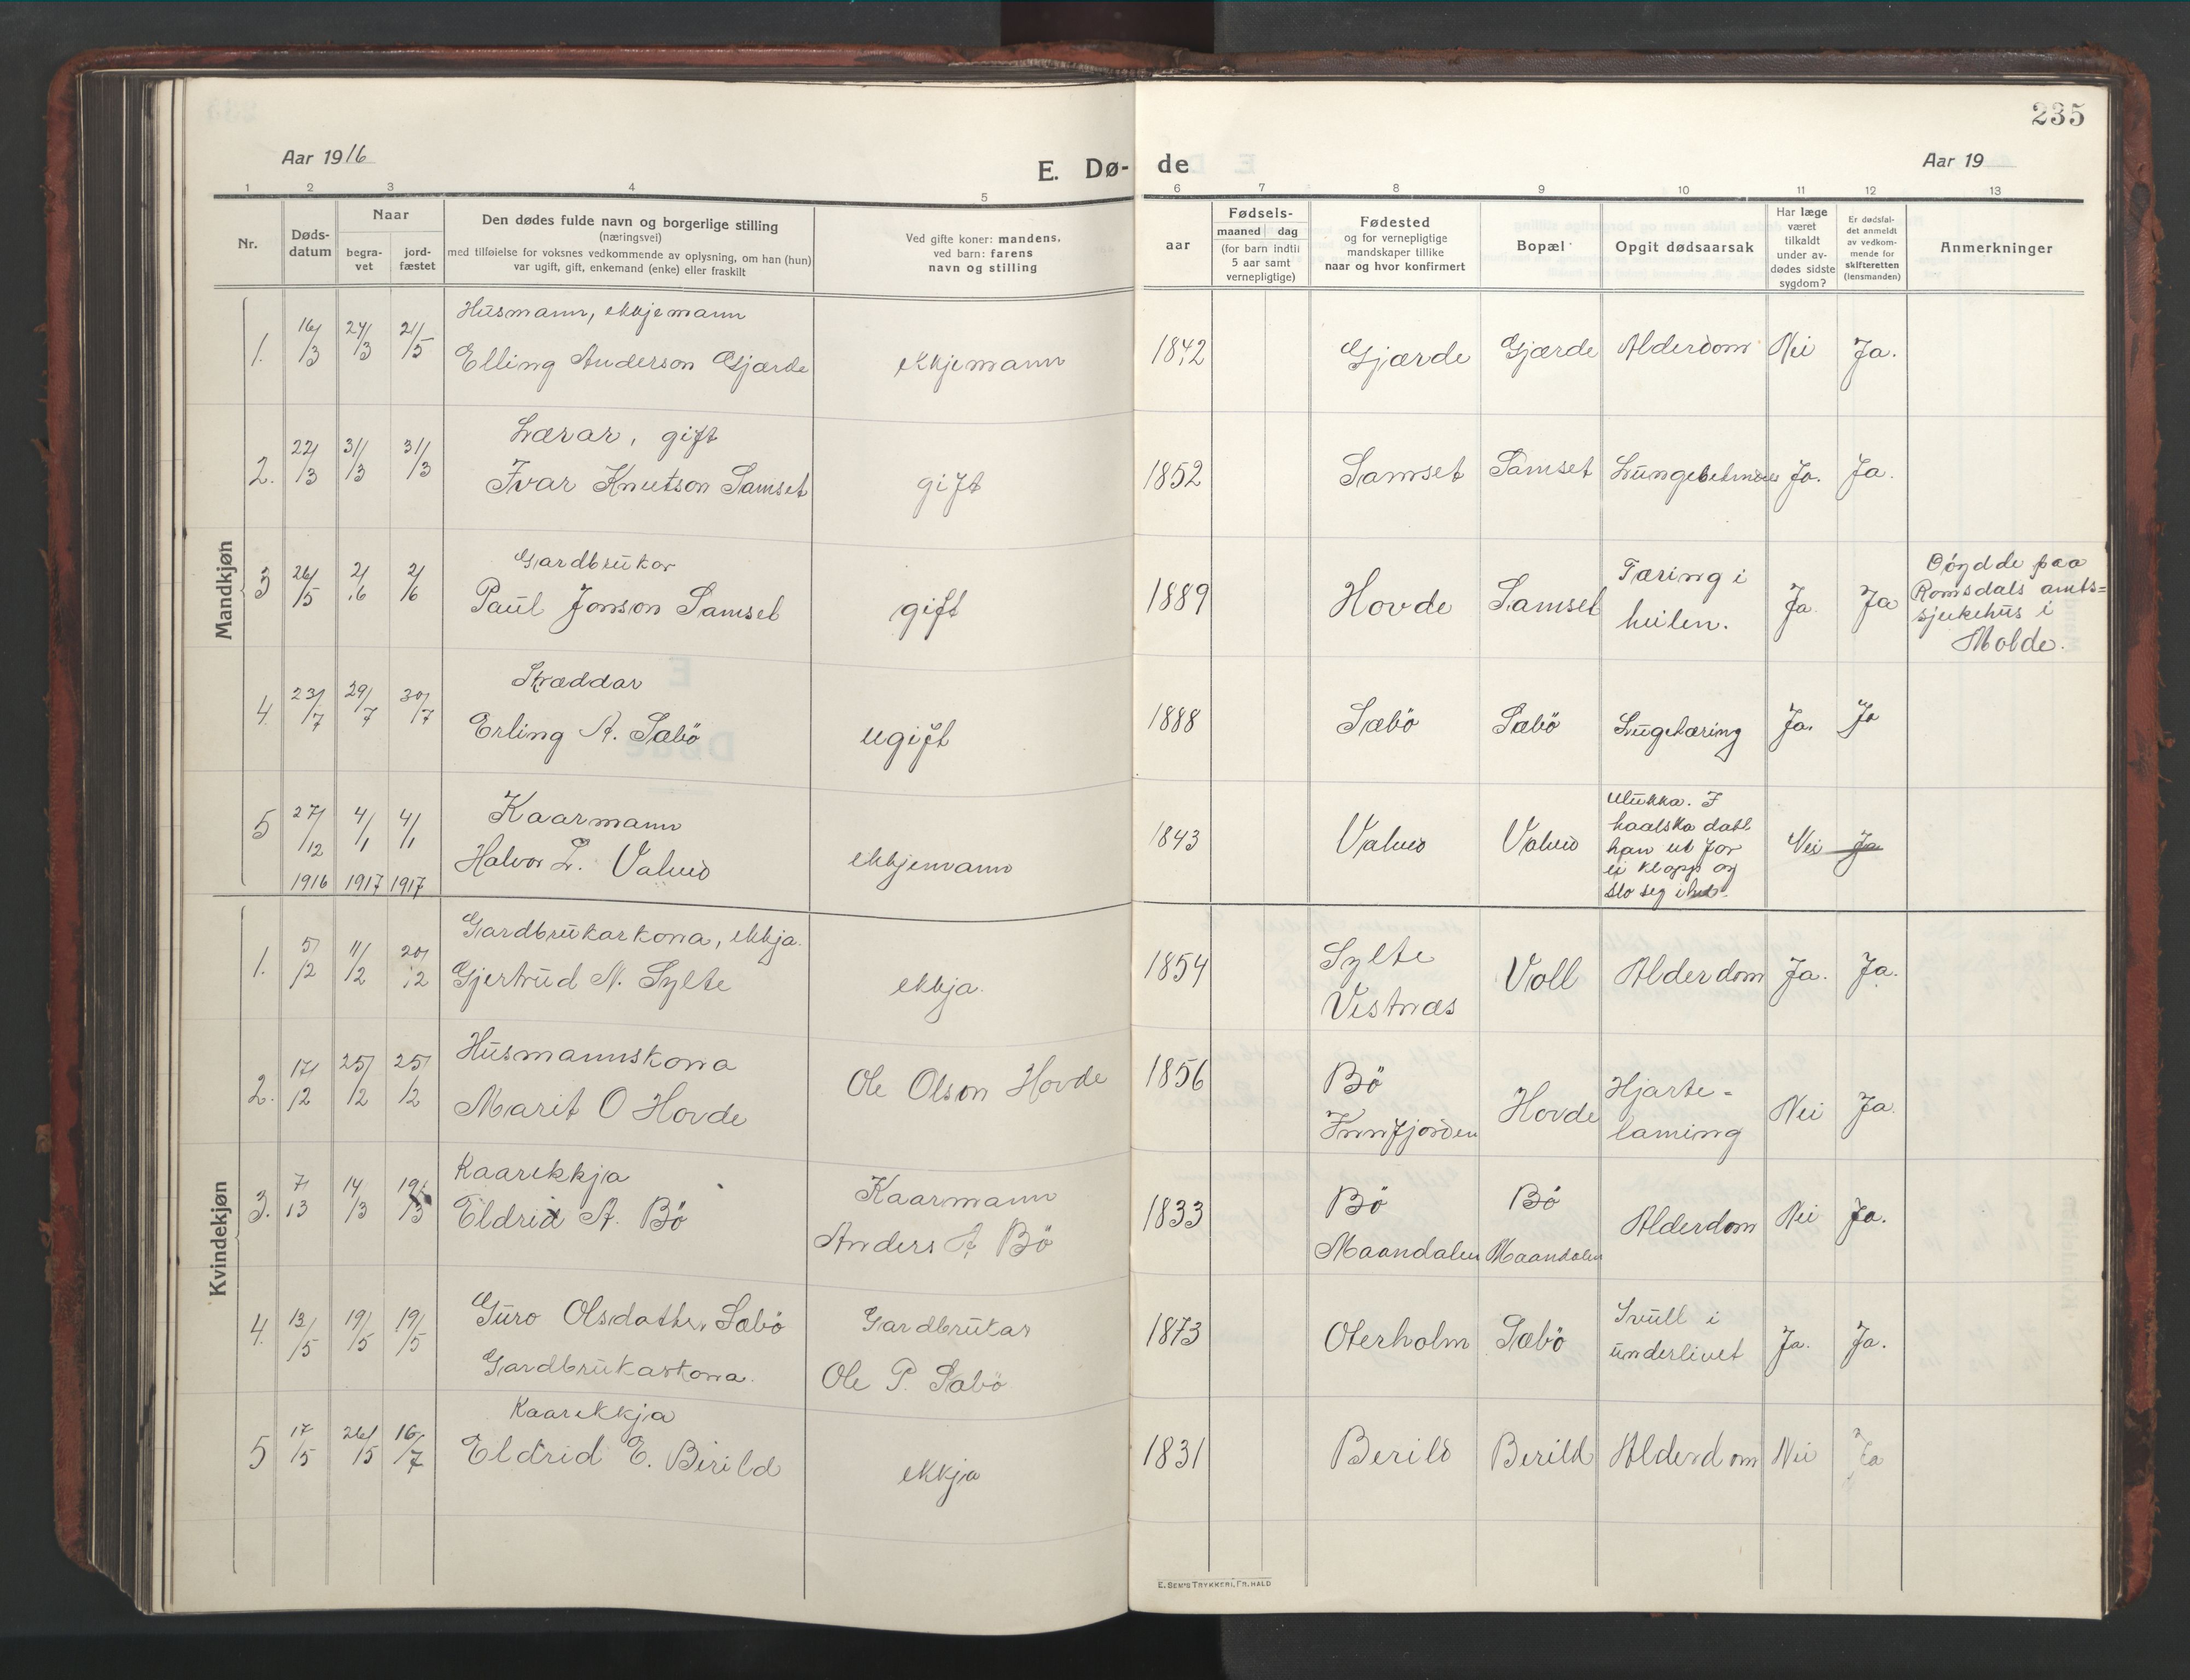 235
Aar 1916
E. Dø- de
Aar 19
1 2 3 4 5 6 7 8 9 10 11 12 13
Nr.
Døds-
datum
Naar
begra-
vet
jord-
fæstet
Den dødes fulde navn og borgerlige stilling
(næringsvei)
med tilføielse for voksnes vedkommende av oplysning, om han (hun)
var ugift, gift, enkemand (enke) eller fraskilt
Ved gifte koner: mandens,
ved barn: farens
navn og stilling
aar
Fødsels-
maaned dag
(for barn indtil
5 aar samt
vernepligtige)
Fødested
og for vernepligtige
mandskaper tillike
naar og hvor konfirmert
Bopæl
Opgit dødsaarsak
Har læge
været
tilkaldt
under av-
dødes sidste
sygdom?
Er dødsfal-
det anmeldt
av vedkom-
mende for
skifteretten
(lensmanden)
Anmerkninger
Mandkjøn
Husmann, ekkjemann
1. 16/3 24/3 21/5 Elling Anderson Gjærde ekkjemann 1842 Gjærde Gjærde Alderdom Nei Ja.
Lærar, gift
2. 22/3 31/3 31/3 Ivar Knutson Samset gift 1852 Samset Samset Ja. Ja.
Gardbrukar
3 26/5 2/6 2/6 Paul Jonson Samset gift 1889 Hovde Samset Tæring i
heilen. Ja. Ja
Döydde paa
Romsdals amts=
sjukehus i
Molde.
Skræddar
4. 23/7 29/7 30/7 Erling A. Sæbö ugift 1888 Sæbö Sæbö Lugetæring Ja. Ja
Kaarmann
5 27/12 4/1 4/1 Halvor L. ekkjemann 1843 Nei Ja
1916 1917 1917
Ulukka. I
haalska datt
han ut for
ei klopp og
slo seg
Kvindekjøn
Gardbrukarkona, ekkja.
1. 5/2 11/2 20/2 Gjertrud N. Sylte ekkja. 1854 Sylte
Vestnæs Voll Alderdom Ja. Ja.
Husmannskona
2. 17/2 25/2 25/2 Marit O Hovde Ole Olson Hovde 1856 Bö
Innfjorden Hovde Hjarte-
laming Nei Ja.
Kaarekkja
3. 7/3 14/3 19/3 Eldrid A. Bö Kaarmann
Anders A Bö 1833 Bö
Maandalen Bö
Maandalen Alderdom Nei Ja.
4. 13/5 19/5 19/5 Guro Olsdatter Sæbö
Gardbrukarkona. Gardbrukar
Ole P. Sæbö 1873 Oterholm Sæbö Svull i
underlivet Ja. Ja.
Kaarekkja
5 17/5 26/5 16/7 Eldrid E. Berild ekkja 1831 Berild Berild Alderdom Nei Ja
E. SEM'S TRYKKERI, FR.HALD